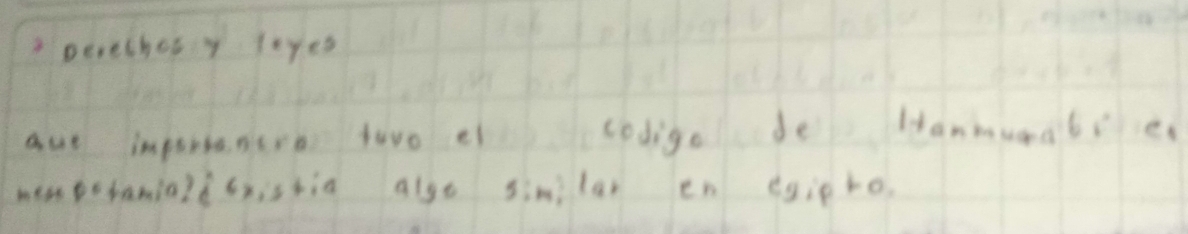 Derechos y leyes
que importancia tuvo el codigo de Hanmurabi en
mesopotamia? ¿Existia algo similar en egipto.